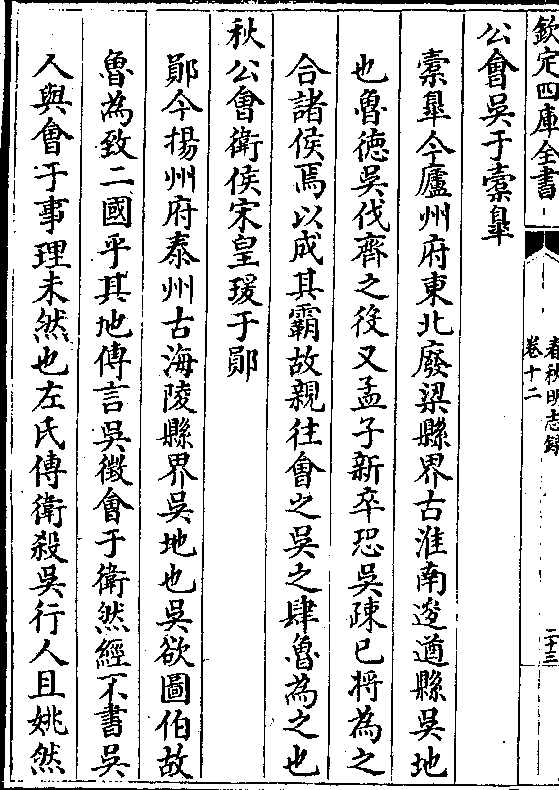 欽定四庫全書
春秋明志録
卷十二
二十三
公會吳于橐臯
橐臯今廬州府東北廢梁縣界古淮南逡遒縣吳地
也魯徳吳伐齊之役又孟子新卒恐吳疎已将為之
合諸侯焉以成其霸故親往會之吳之肆魯為之也
秋公會衛侯宋皇瑗于鄖
鄖今揚州府泰州古海陵縣界吳地也吳欲圖伯故
魯為致二國乎其地傳言吳徵會于衛然經不書吳
人與會于事理未然也左氏傳衛殺吳行人且姚然